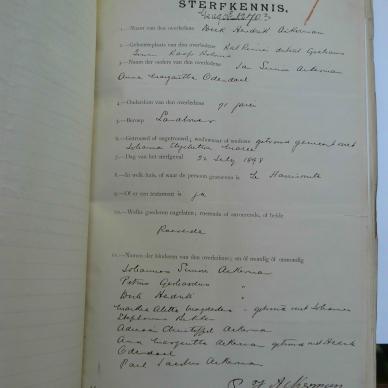 STERFKENNIS,
1.—Naam van den overledene Dirk Hendrik Ackerman
2.—Geboorteplaats van den overledene
Kaap Kolonie
3.—Namen der ouders van den overledene Jan Ackerman
Anna Margaritha Odendaal
4.—Ouderdom van den overledene 71 jaren
5.—Beroep Landbouwer
6.—Getrouwd of ongetrouwd; weduwnaar of weduwe getrouwd gemeenschap met
Johanna Elizabetha
7.—Dag van het sterfgeval 22 July 1898
8.—In welk huis, of waar de persoon gestorven is te Harrismith
9.—Of er een testament is ja
10.—Welke goederen nagelaten; roerende of onroerende, of beide
Roerende
11.—Namen der kinderen van den overledene; en of mondig of onmondig
Johannes Ackerman
Petrus Gerhardus "
Dirk Hendrik "
Martha Aletta Magdalena " getrouwd met Johannes
Stephanus Bekker
Adriaan Christoffel Ackerman
Anna Margaritha Ackerman getrouwd met Hendrik
Odendaal
Paul Jacobus Ackerman
Ackerman